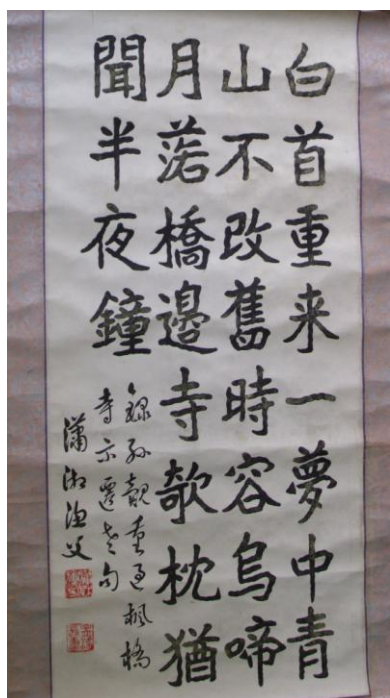 白首重来一夢中青
山不改舊時容烏啼
月落橋邊寺欹枕猶
聞半夜鐘
錄孫覿重過楓橋
寺示遷老句
瀟湘漁父